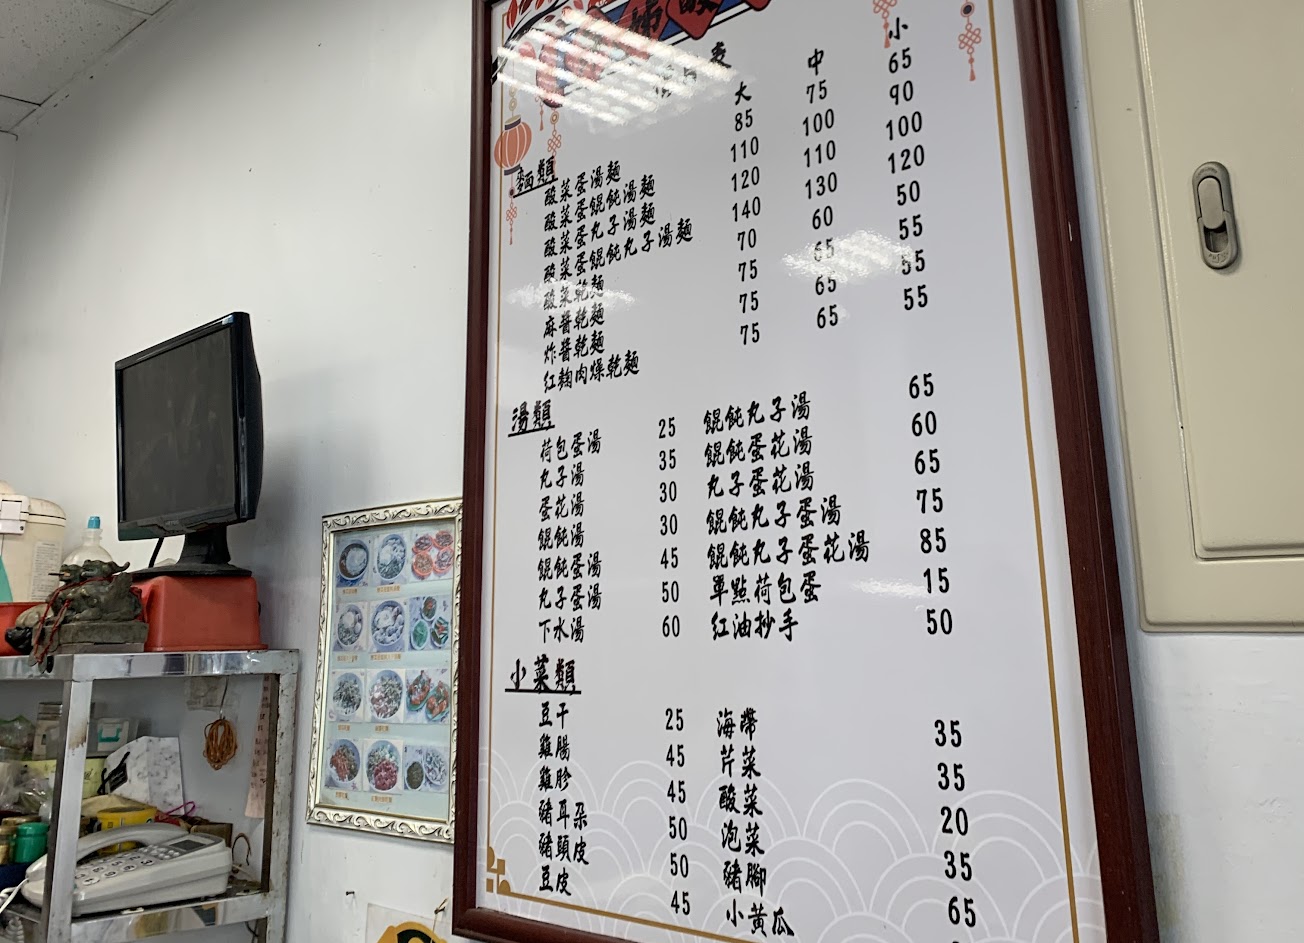 表
大 中 小
麵類
酸菜蛋湯麵 85 75 65
酸菜蛋餛飩湯麵 110 100 90
酸菜蛋丸子湯麵 120 110 100
酸菜蛋餛飩丸子湯麵 140 130 120
酸菜乾麵 70 60 50
麻醬乾麵 75 65 55
炸醬乾麵 75 65 55
紅麴肉燥乾麵 75 65 55
湯類
荷包蛋湯 25 餛飩丸子湯 65
丸子湯 35 餛飩蛋花湯 60
蛋花湯 30 丸子蛋花湯 65
餛飩湯 30 餛飩丸子蛋湯 75
餛飩蛋湯 45 餛飩丸子蛋花湯 85
丸子蛋湯 50 單點荷包蛋 15
下水湯 60 紅油抄手 50
小菜類
豆干 25 海帶 35
雞腸 45 芹菜 35
雞胗 45 酸菜 20
豬耳朵 50 泡菜 35
豬頭皮 50 豬腳 65
豆皮 45 小黃瓜